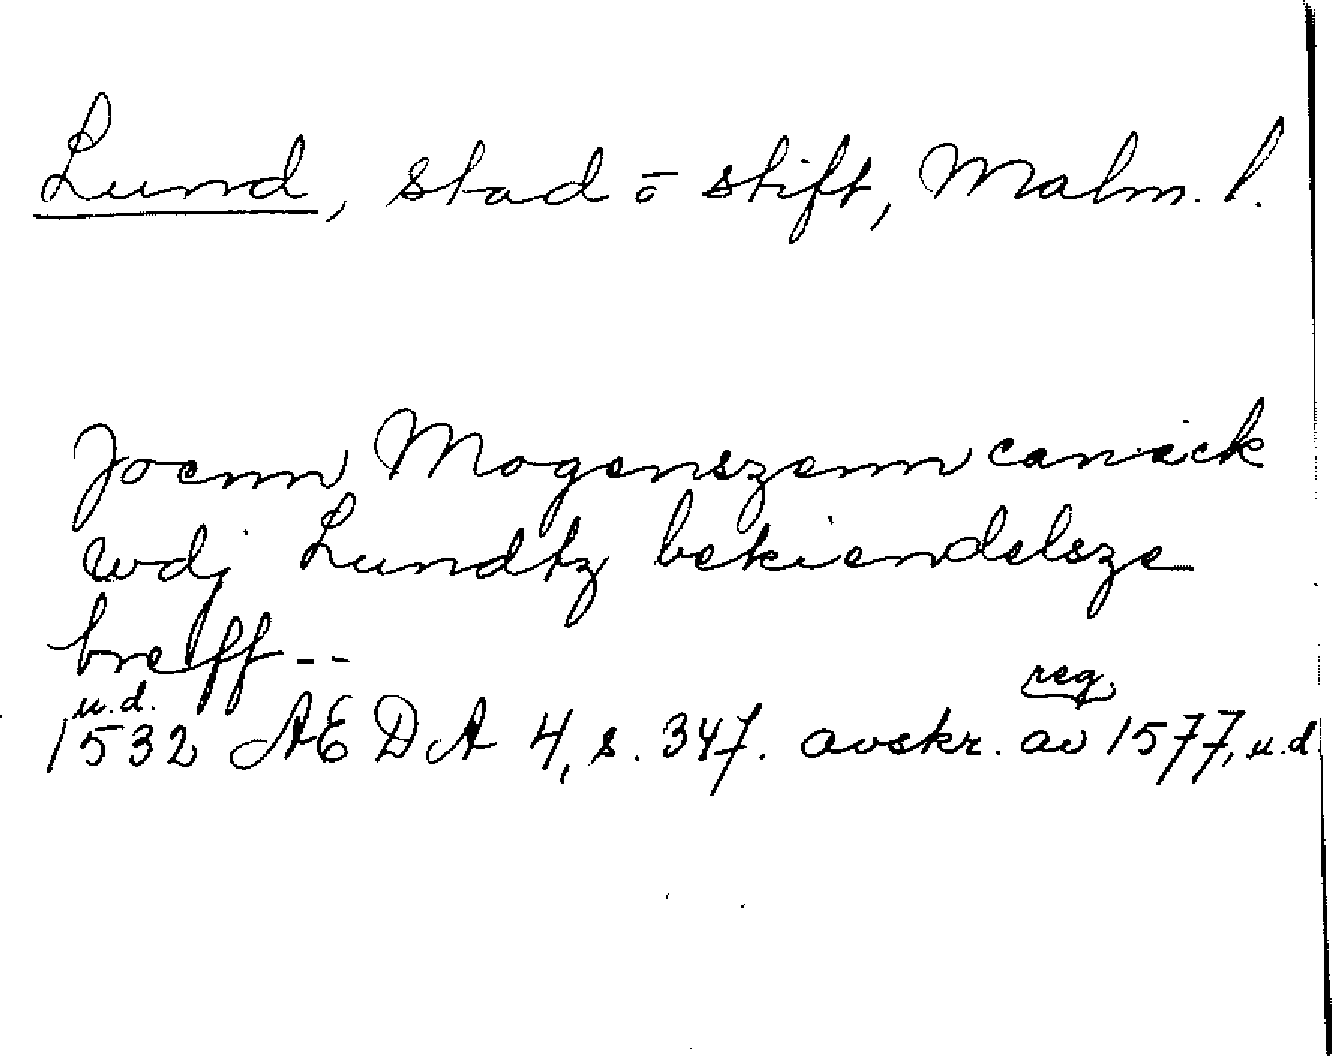 Lund, stad o stift, Malm. l.
Joenn Mogenszenn canick
wdj Lundtz bekiendelsze
breff --
u.d. reg.
1532 AEDA 4, s. 347. avskr. av 1577, u.d.